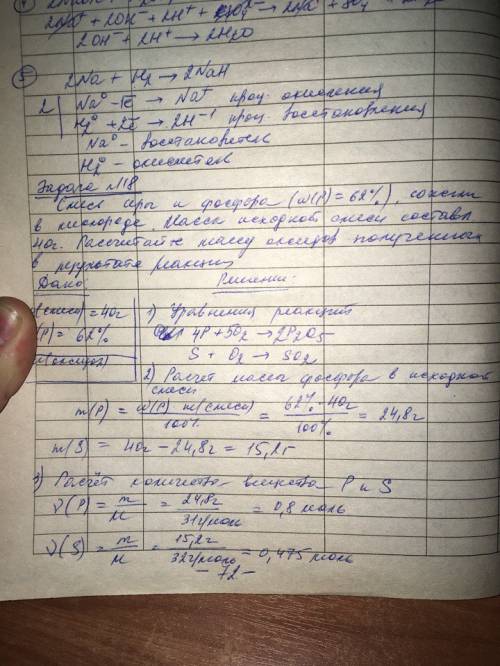 2Na⁺ + 2OH⁻ + 2H⁺ + SO₄²⁻ → 2Na⁺ + SO₄
2OH⁻ + 2H⁺ → 2H₂O
⑤ 2Na + H₂ → 2NaH
2 | Na⁰ - 1ē → Na⁺ проц. окисления
H₂⁰ + 2ē → 2H⁻¹ проц. восстановления
Na⁰ - восстановитель
H₂⁰ - окислитель
Задача №18
Смесь серы и фосфора (ω(P) = 62%), сожгли
в кислороде. Масса исходной смеси составл
40г. Рассчитайте массу оксидов полученных
в результате реакции
Дано: Решение:
(смеси) = 40г 1) Уравнения реакций
(P) = 62% 4P + 5O₂ → 2P₂O₅
(оксидов) S + O₂ → SO₂
2) Расчёт массы фосфора в исходной
смеси
m(P) = ω(P) · m(смеси) / 100% = 62% · 40г / 100% = 24,8г
m(S) = 40г - 24,8г = 15,2г
3) Расчёт количества вещества P и S
ν(P) = m/M = 24,8г / 31г/моль = 0,8 моль
ν(S) = m/M = 15,2г / 32г/моль = 0,475 моль
- 72 -